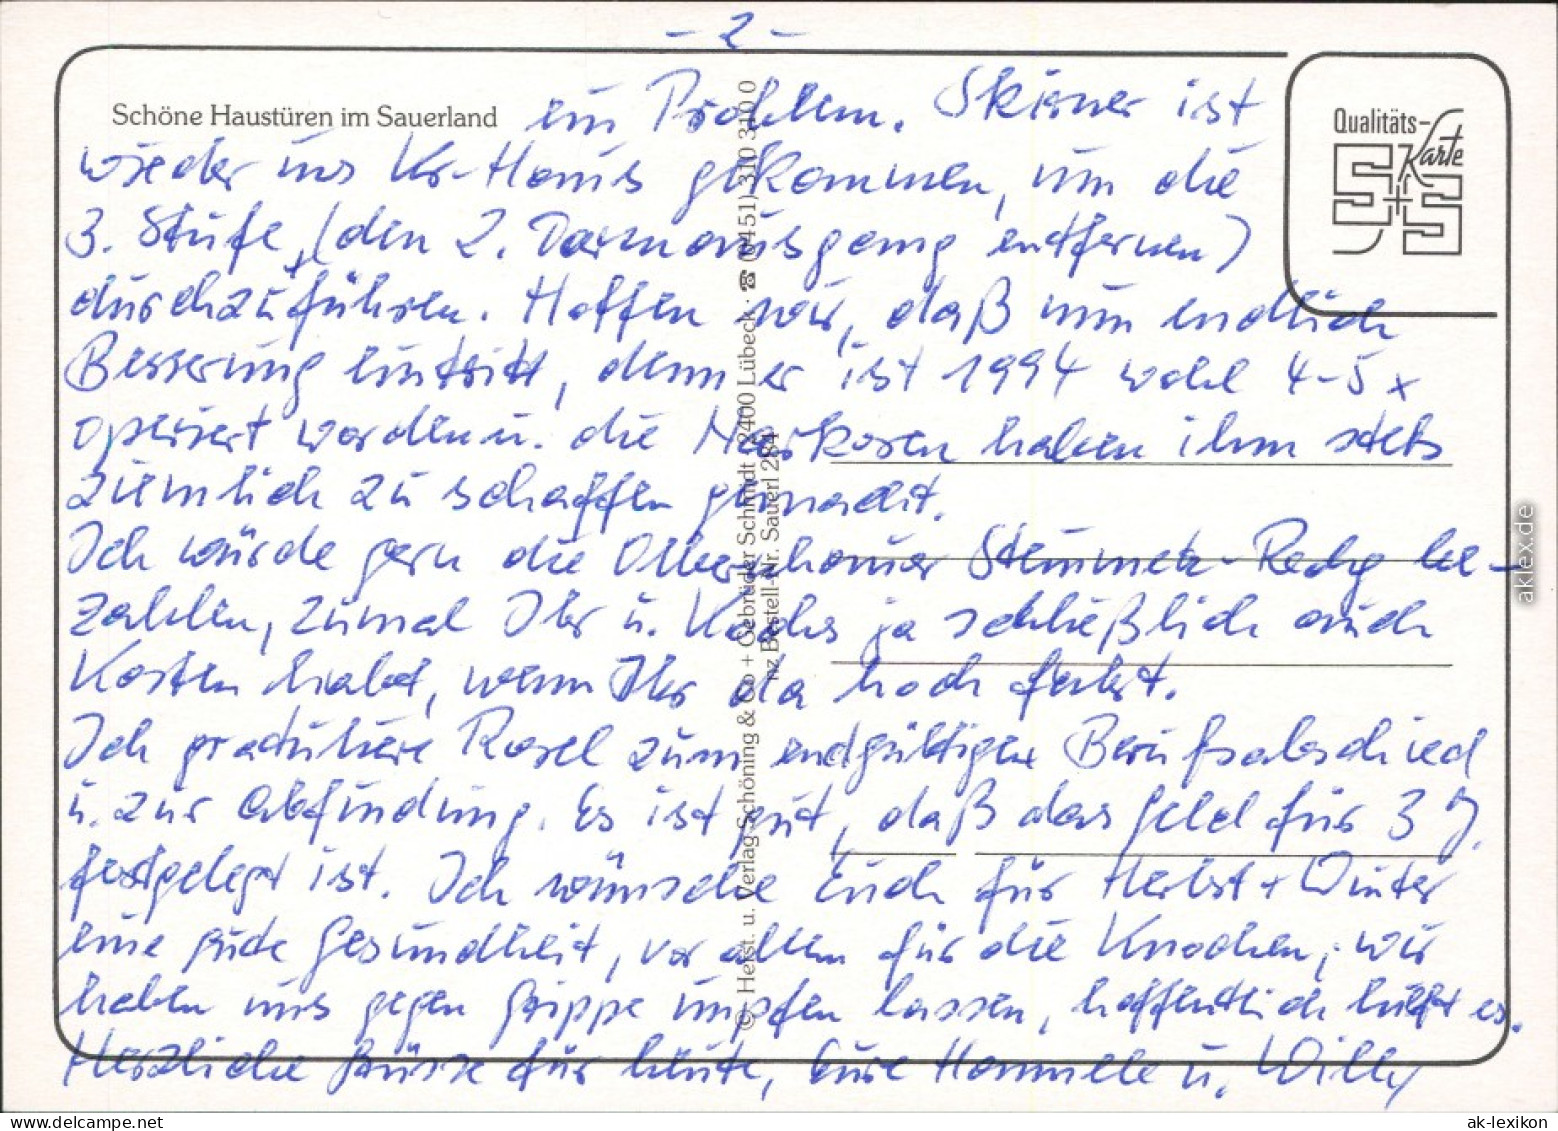 - 2 -
Schöne Haustüren im Sauerland
ein Problem. Skisner ist
wieder ins Kr-Haus gekommen, um die
3. Stufe, (den 2. Darmausgang entfernen)
durchzuführen. Hoffen wir, daß nun endlich
Besserung eintritt, denn er ist 1994 wohl 4-5 x
operiert worden u. die Narkosen haben ihm stets
ziemlich zu schaffen gemacht.
Ich würde gern die Steinmetz-Rechg be-
zahlen, zumal Ihr u. Kochs ja schließlich auch
Kosten habt, wenn Ihr da hoch fahrt.
Ich gratuliere Rosel zum endgültigen Berufsabschied
u. zur Abfindung. Es ist gut, daß das Geld für 3 J.
festgelegt ist. Ich wünsche Euch für Herbst + Winter
eine gute Gesundheit, vor allem für die Knochen, wir
haben uns gegen Grippe impfen lassen, hoffentlich hilft es.
Herzliche Grüsse für heute, Eure Hannele u. Willy
Qualitäts-
Karte
S+S
© Herst. u. Verlag Schöning & Co + Gebrüder Schmidt · 2400 Lübeck · ☎ (0451) 310 310 0
nz Bestell-Nr. Sauerl 284
aklex.de
delcampe.net
ak-lexikon